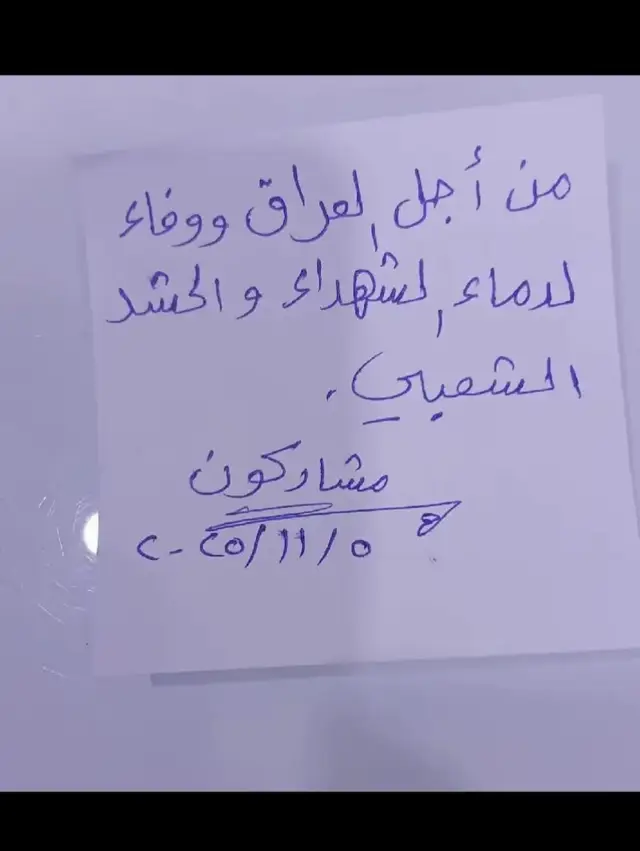 من أجل العراق ووفاء
لدماء الشهداء والحشد
الشعبي.
مشاركون
٢٠٢٥/١١/٥